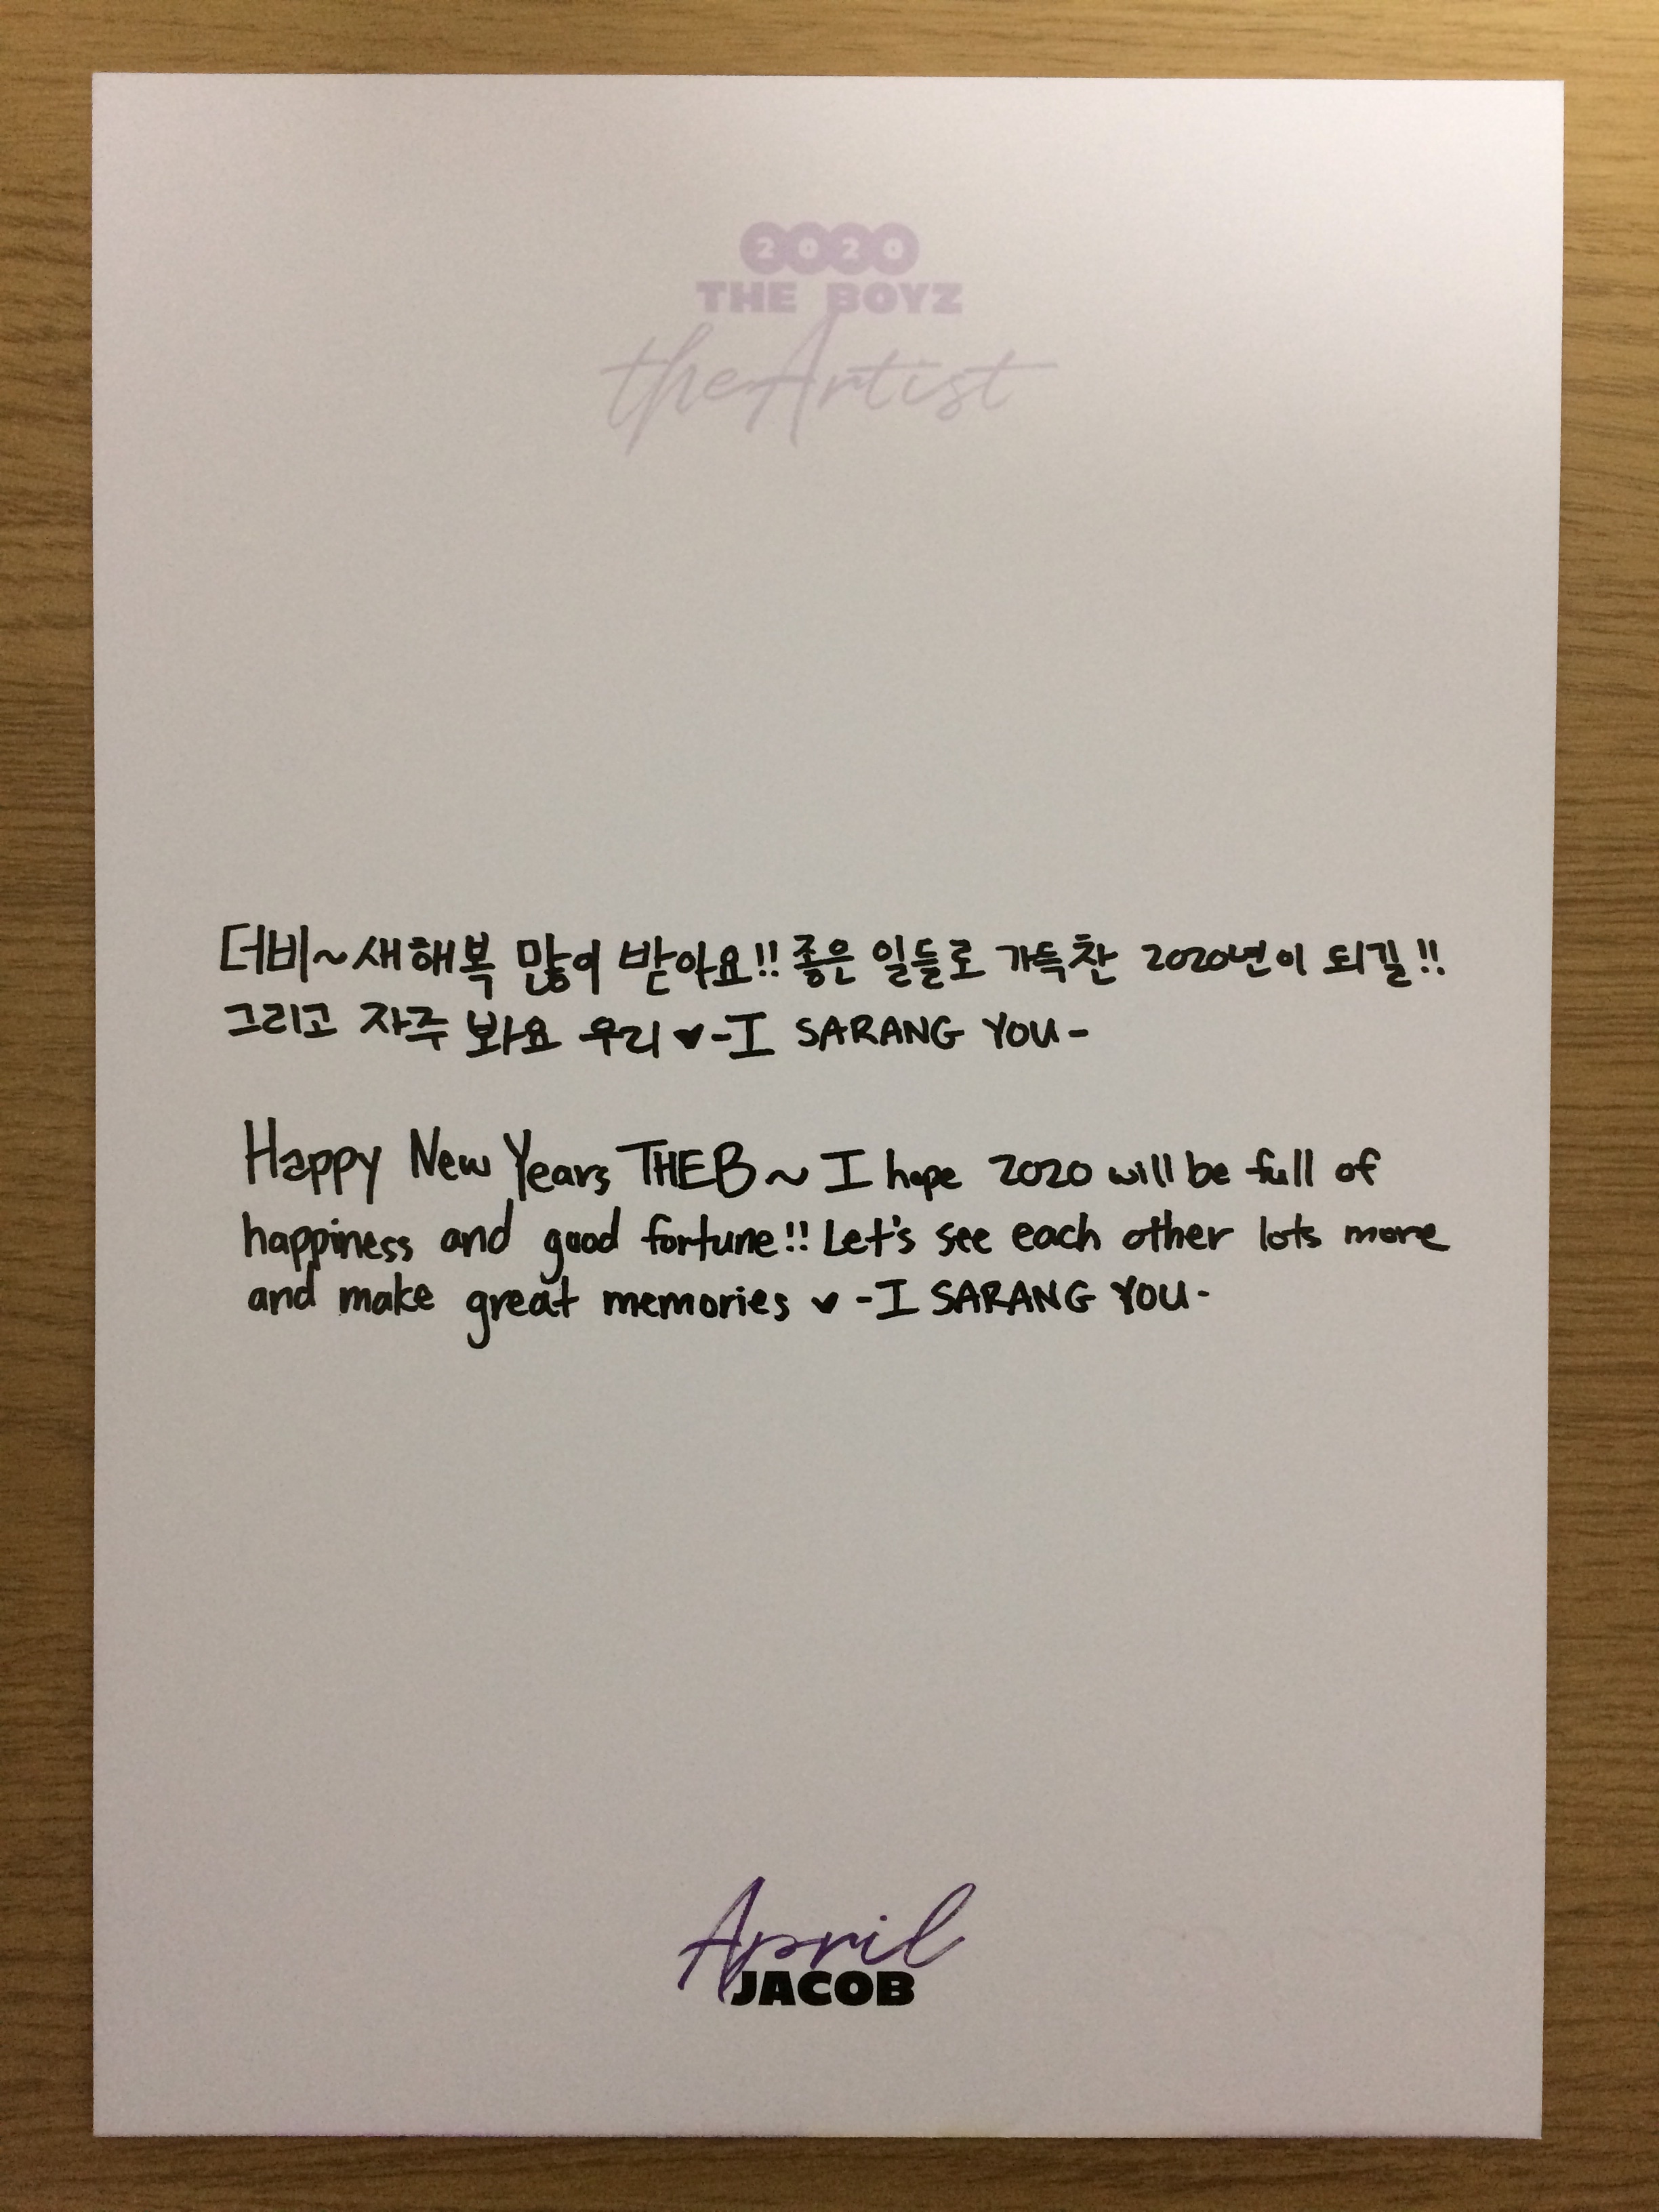 2020
THE BOYZ
the Artist
더비~새해복 많이 받아요!! 좋은 일들로 가득찬 2020년이 되길!!
그리고 자주 봐요 우리 ♥ -I SARANG YOU-
Happy New Years THEB~ I hope 2020 will be full of
happiness and good fortune!! Let's see each other lots more
and make great memories ♥ -I SARANG YOU-
April
JACOB